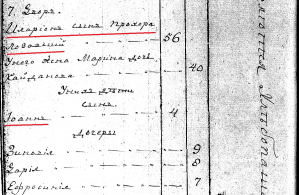 7. Дворъ.
Иларіонъ сынъ Прохора
Лозовскій 56
У него жена Марина дочь 40
Хайданова
У нихъ дѣти
сынъ
Іоаннъ 4
Дочери
Зиновія 9
Дарія 8
Евфросинія 7